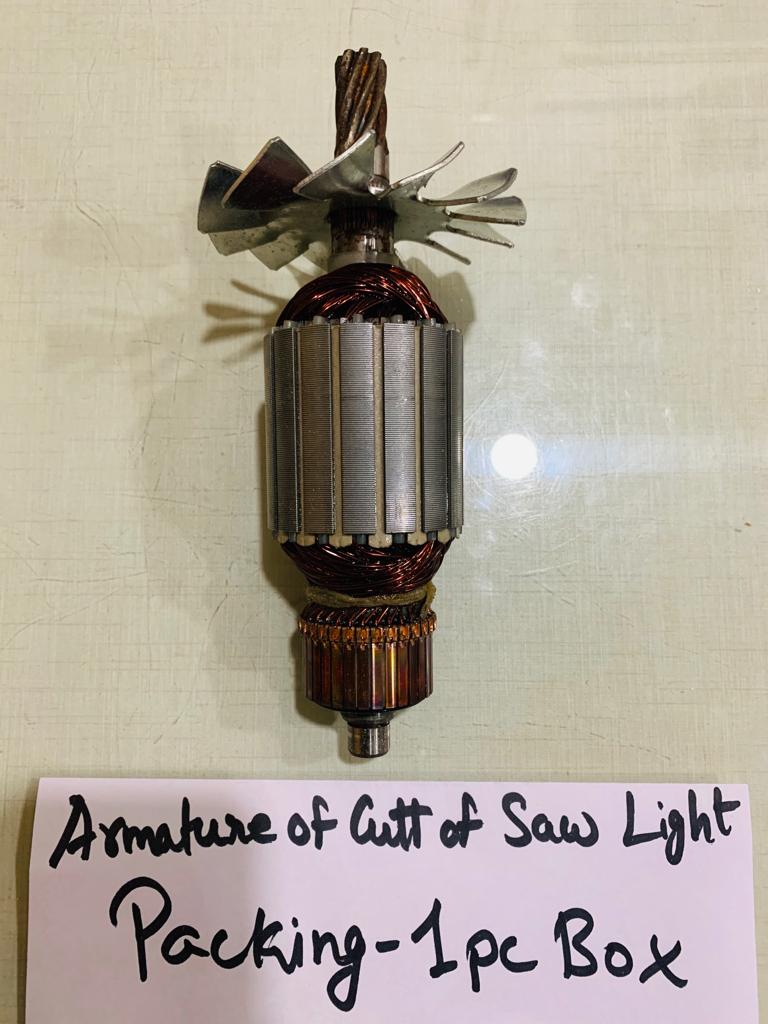 Armature of Cutt of Saw Light
Packing-1pc Box